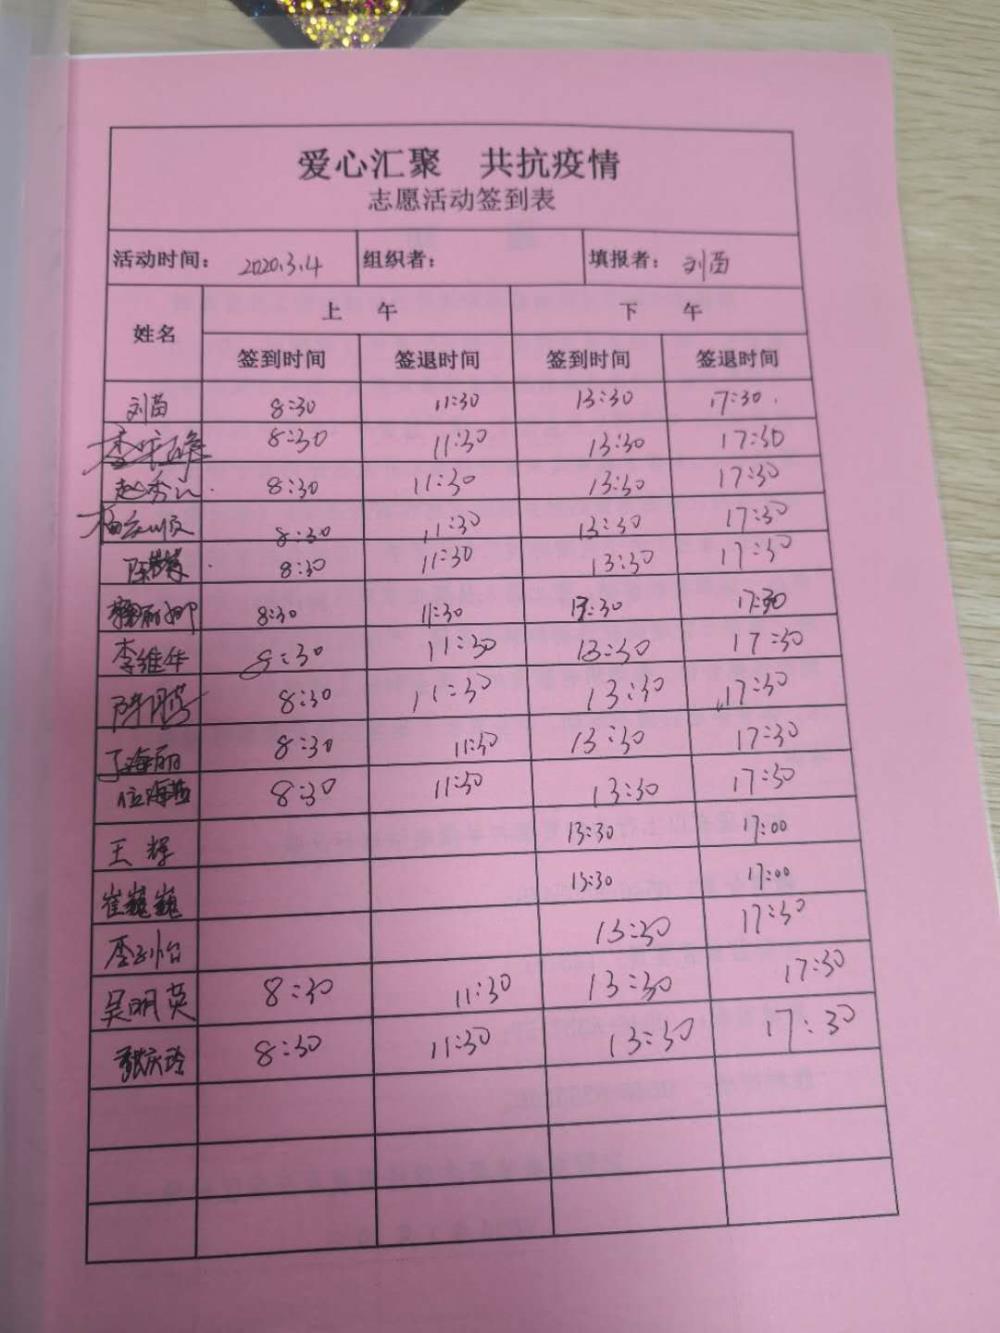 爱心汇聚 共抗疫情
志愿活动签到表
活动时间： 2020.3.4 组织者： 填报者： 刘苗
姓名 上 午 下 午
签到时间 签退时间 签到时间 签退时间
刘苗 8:30 11:30 13:30 17:30.
8:30 11:30 13:30 17:30
赵秀 8:30 11:30 13:30 17:30
8:30 11:30 13:30 17:30
陈 8:30 11:30 13:30 17:30
丽娜 8:30 11:30 13:30 17:30
李维华 8:30 11:30 13:30 17:30
陈 8:30 11:30 13:30 17:30
丁海丽 8:30 11:30 13:30 17:30
位海燕 8:30 11:30 13:30 17:30
王辉 13:30 17:00
崔巍巍 13:30 17:00
李 怡 13:30 17:30
吴明英 8:30 11:30 13:30 17:30
张庆玲 8:30 11:30 13:30 17:30